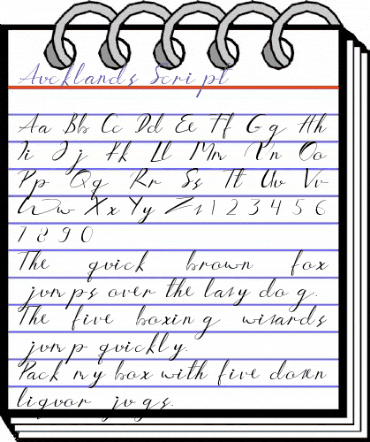 Aucklands Script
Aa Bb Cc Dd Ee Ff Gg Hh
Ii Jj Kk Ll Mm Nn Oo
Pp Qq Rr Ss Tt Uu Vv
Ww Xx Yy Zz 1 2 3 4 5 6
7 8 9 0
The quick brown fox
jumps over the lazy dog.
The five boxing wizards
jump quickly.
Pack my box with five dozen
liquor jugs.